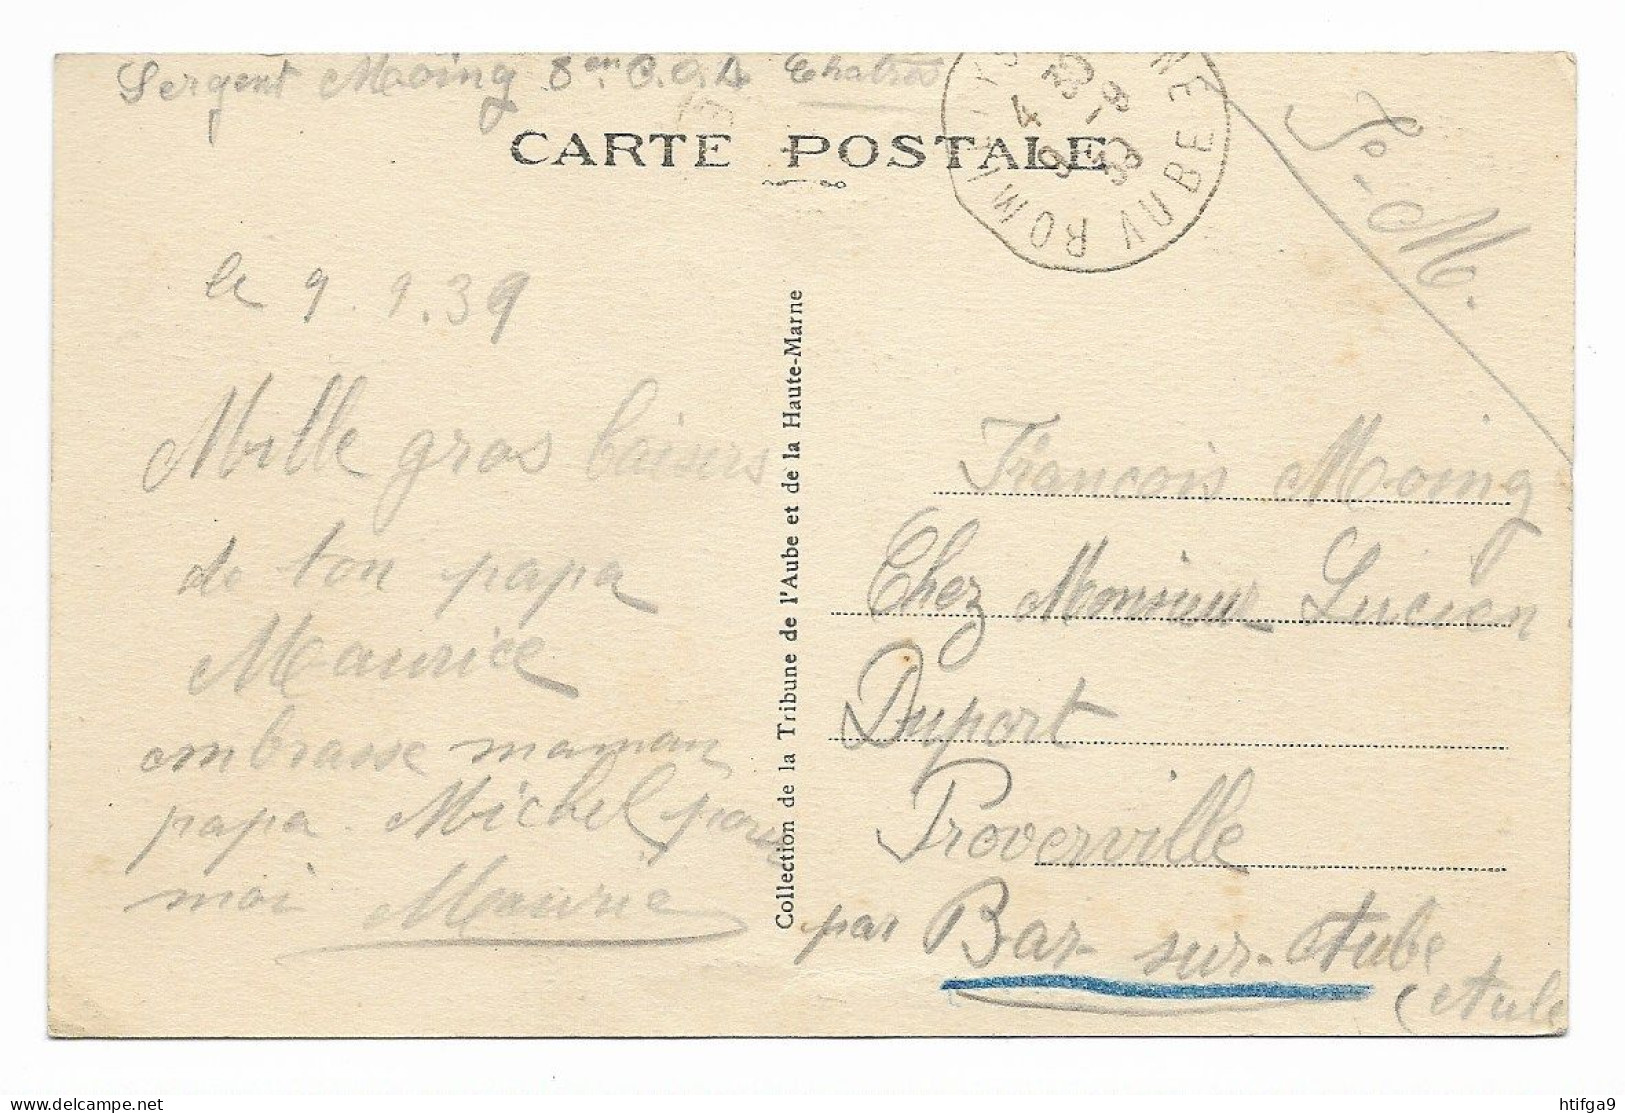 Sergent Moing 8em C.O.A
CARTE POSTALE
ROMILLY S SEINE AUBE
4 30
9 -9
39
F.M.
le 9.9.39
Mille gros baisers
de ton papa
Maurice
embrasse maman
papa Michel pour
moi Maurice
Collection de la Tribune de l'Aube et de la Haute-Marne
François Moing
Chez Monsieur Lucien
Duport
Proverville
par Bar-sur-Aube
(Aube
htifga9